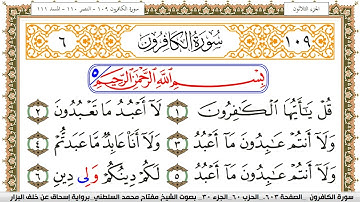 الجزء الثلاثون
سورة الكافرون ١٠٩ - النصر ١١٠ - المسد ١١١
١٠٩ سُورَةُ الْكَافِرُونَ ٦
بِسْمِ اللَّهِ الرَّحْمَٰنِ الرَّحِيمِ ٥
قُلْ يَٰٓأَيُّهَا ٱلْكَٰفِرُونَ ١ لَآ أَعْبُدُ مَا تَعْبُدُونَ ٢
وَلَآ أَنتُمْ عَٰبِدُونَ مَآ أَعْبُدُ ٣ وَلَآ أَنَا۠ عَابِدٌ مَّا عَبَدتُّمْ ٤
وَلَآ أَنتُمْ عَٰبِدُونَ مَآ أَعْبُدُ ٥ لَكُمْ دِينُكُمْ وَلِى دِينِ ٦
سورة الكافرون - الصفحة ٦٠٣ - الحزب ٦٠ - الجزء ٣٠ - بصوت الشيخ مفتاح محمد السلطني برواية إسحاق عن خلف البزار